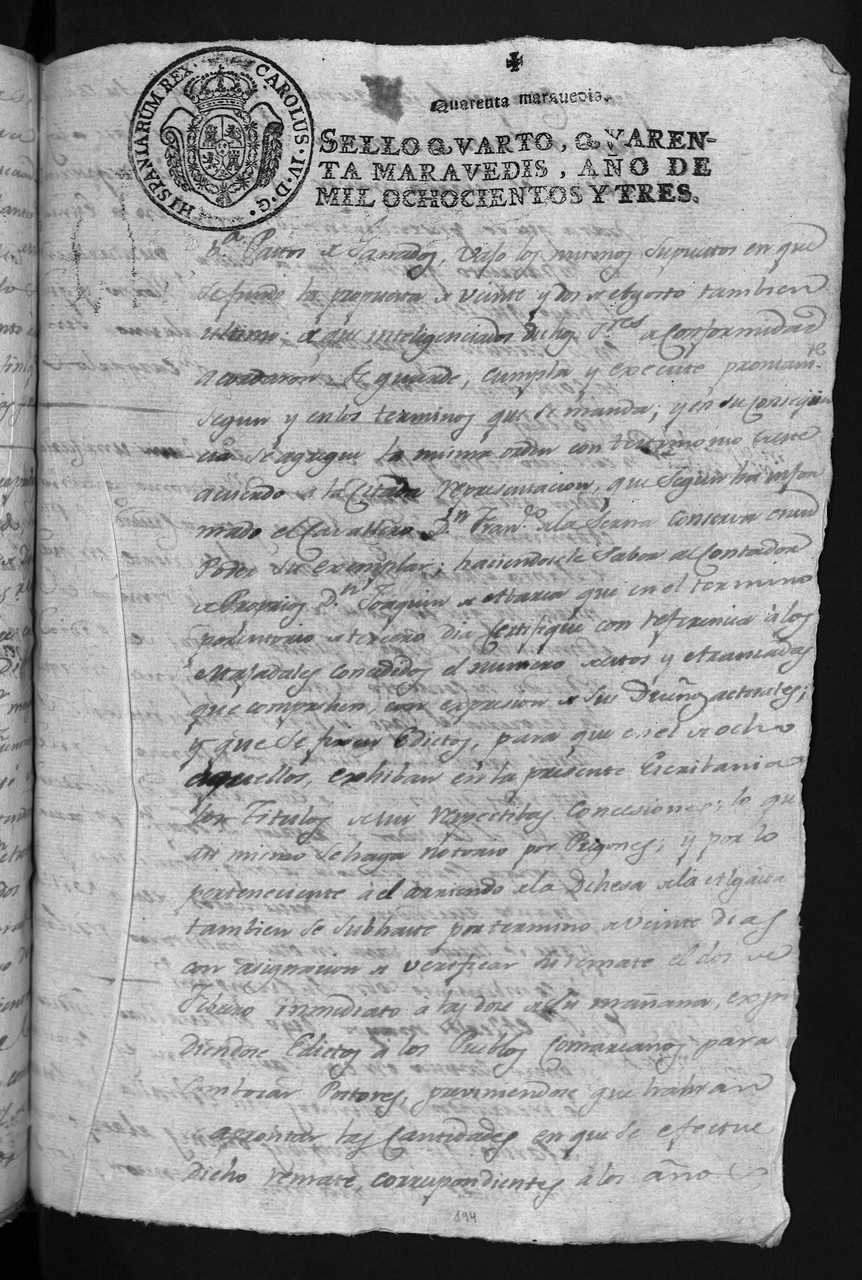 HISPANIARUM REX. CAROLUS. IV. D. G.
Quarenta marauedis.
SELLO QVARTO, QVAREN-
TA MARAVEDIS, AÑO DE
MIL OCHOCIENTOS Y TRES.
Pastos de Ganados, vajo los mismos supuestos en que
se fundó la propuesta de veinte y dos de Agosto tambien
ultimo: de que inteligenciados dichos Sres de Conformidad
acordaron Se guarde, cumpla y execute promtamte
segun y en los terminos que se manda; y en su conseqüen
cia se agregue la misma orden con testimonio de este
acuerdo a la Citada Representacion, que segun ha infor
mado el Cavallero Dn Franco de la Serna conserva en su
Poder su exemplar; haciendose Saber al Contador
de Propios Dn Joaquin de que en el termino
perentorio de tercero dia Certifique con referencia à los
concedidos el numero de estos y
que comprehen, con expresion de sus Dueños actuales;
y que se fixen Edictos, para que en el de ocho
aquellos, exhiban en la presente Escribania
los Titulos de sus respectibas Concesiones; lo que
asi mismo se haga notorio por Pregones; y por lo
perteneciente à el arriendo de la Dehesa de la
tambien se subhaste por termino de veinte dias
con asignacion de verificar su remate el dos de
Febrero inmediato à las doce de su mañana, expi
diendose Edictos à los Pueblos Comarcanos para
combocar Postores, previniendose que habran
de aprontar las Cantidades en que se efectue
dicho remate, correspondientes à los años
194